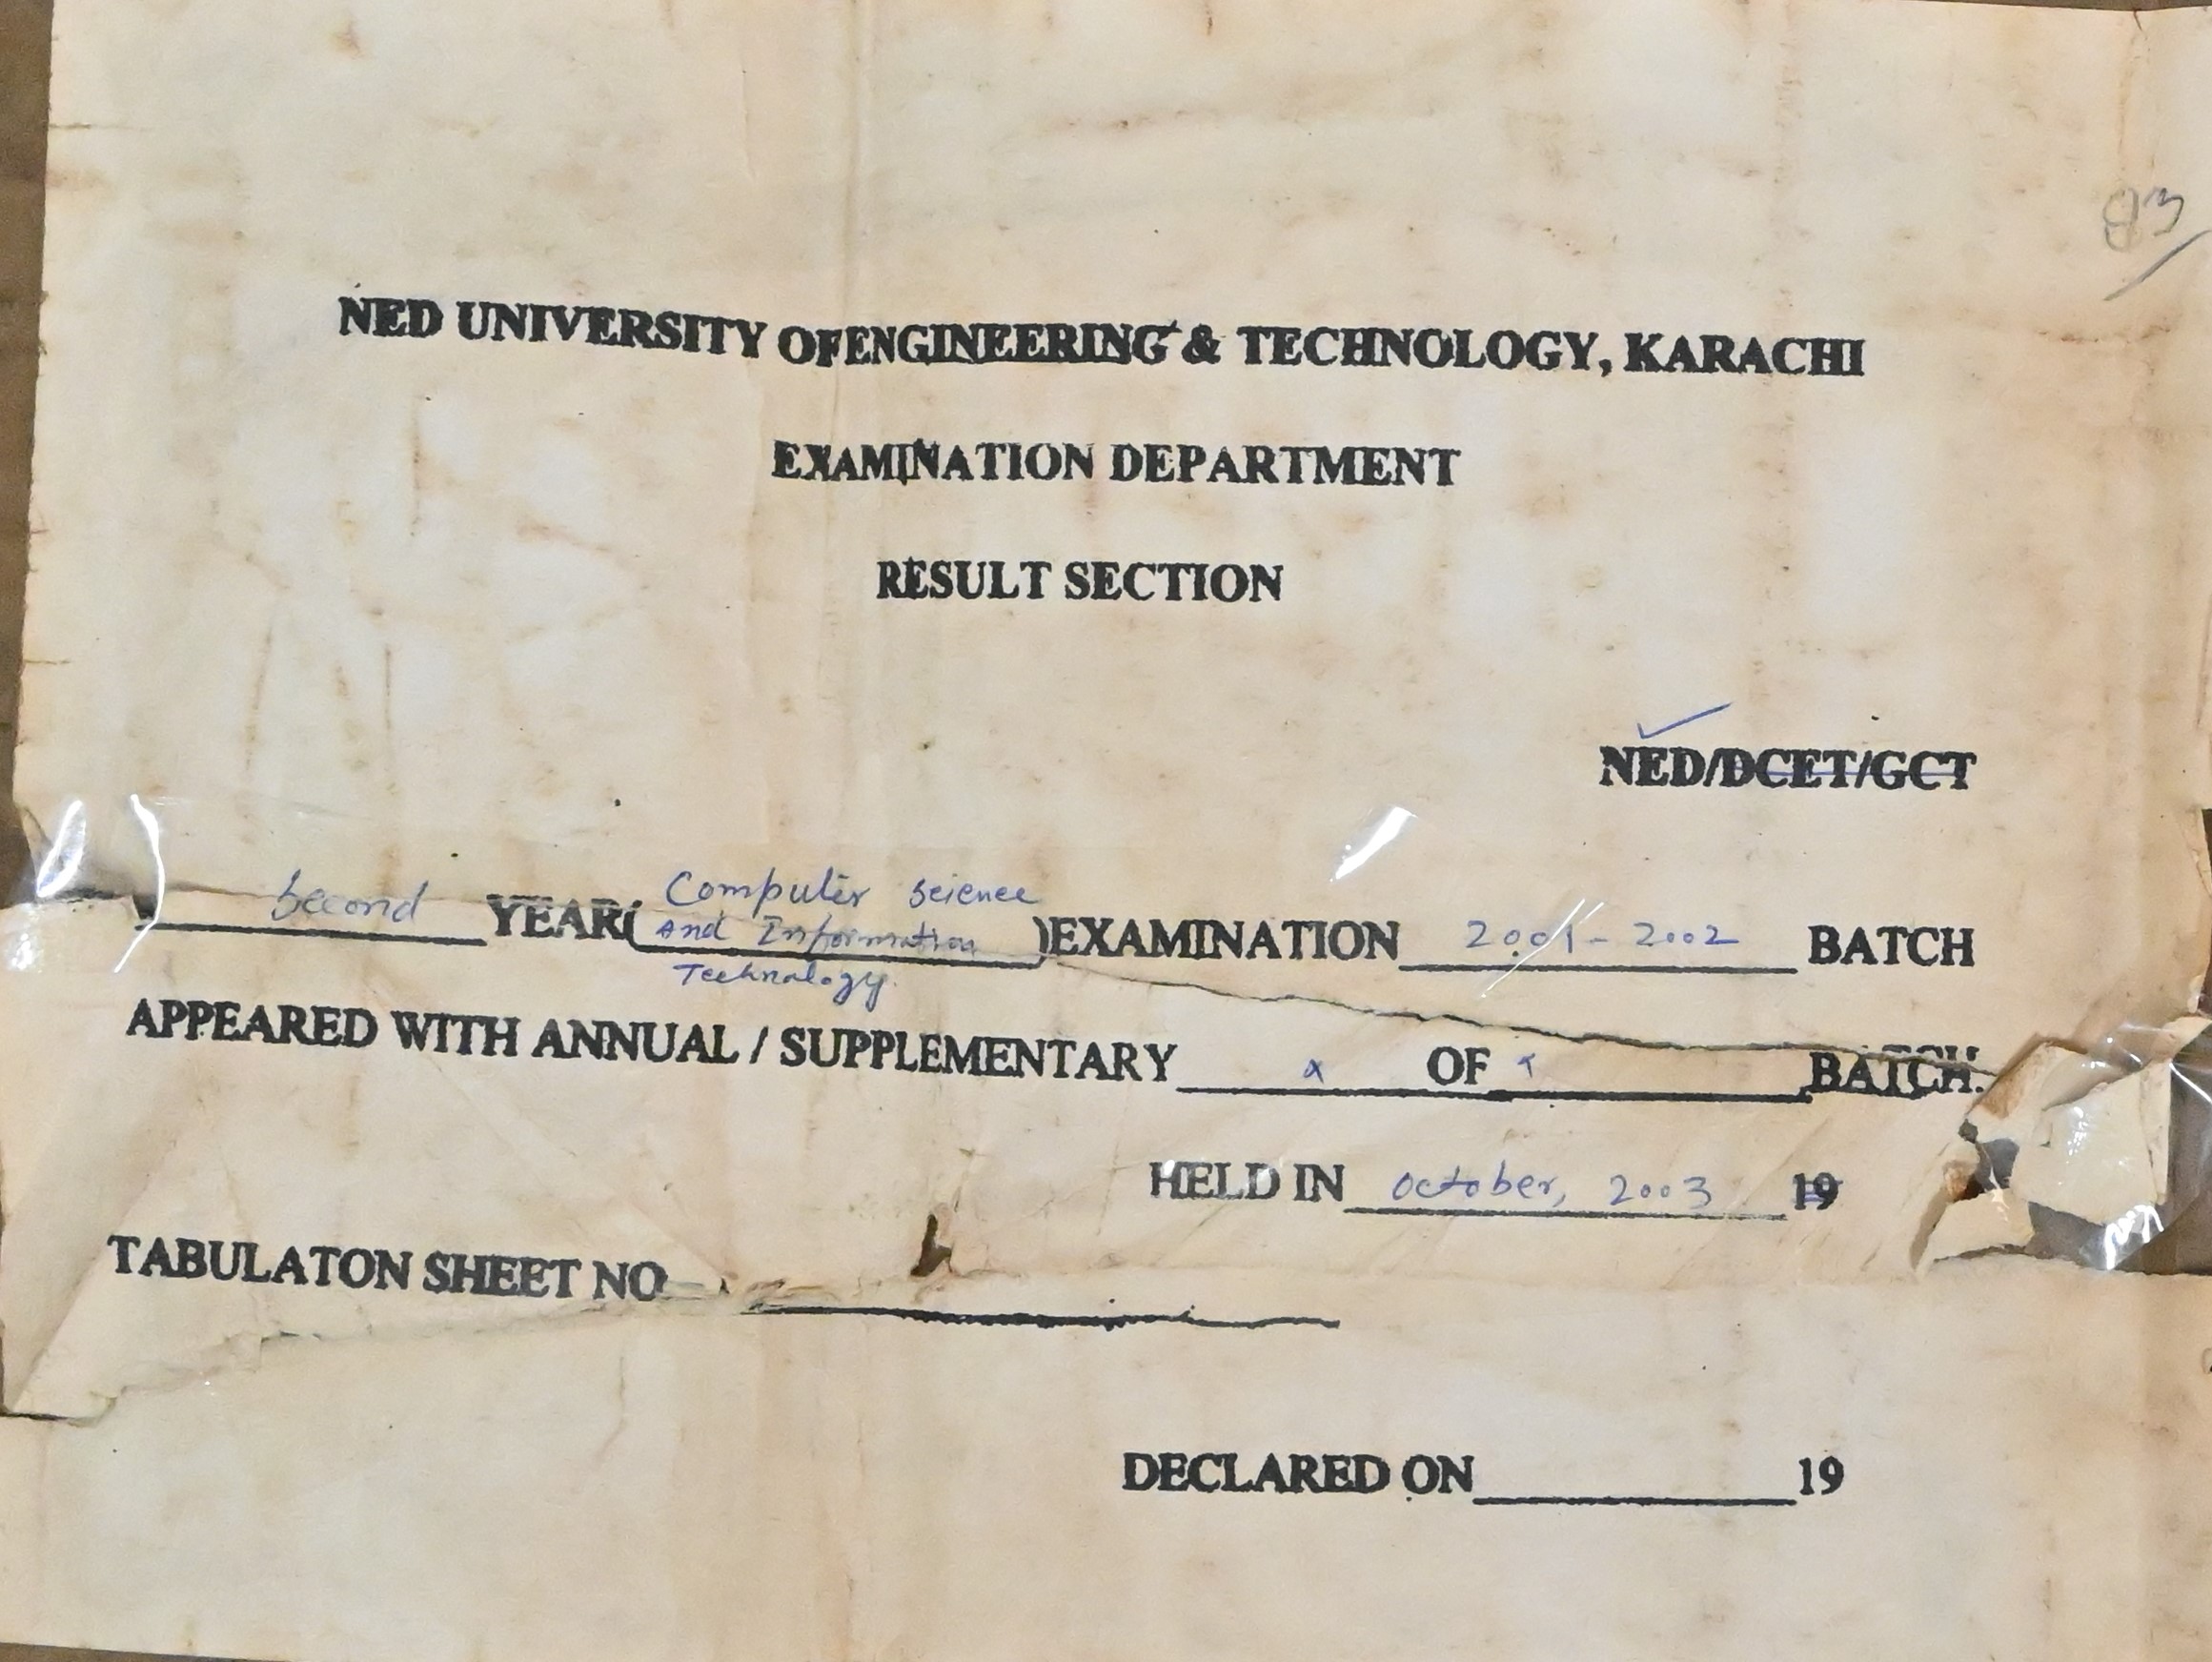 83
NED UNIVERSITY OFENGINEERING & TECHNOLOGY, KARACHI
EXAMINATION DEPARTMENT
RESULT SECTION
NED/DCET/GCT
Second YEAR( Computer Science And Information Technology )EXAMINATION 2001-2002 BATCH
APPEARED WITH ANNUAL / SUPPLEMENTARY x OF x BATCH.
HELD IN October, 2003 19
TABULATON SHEET NO
DECLARED ON 19